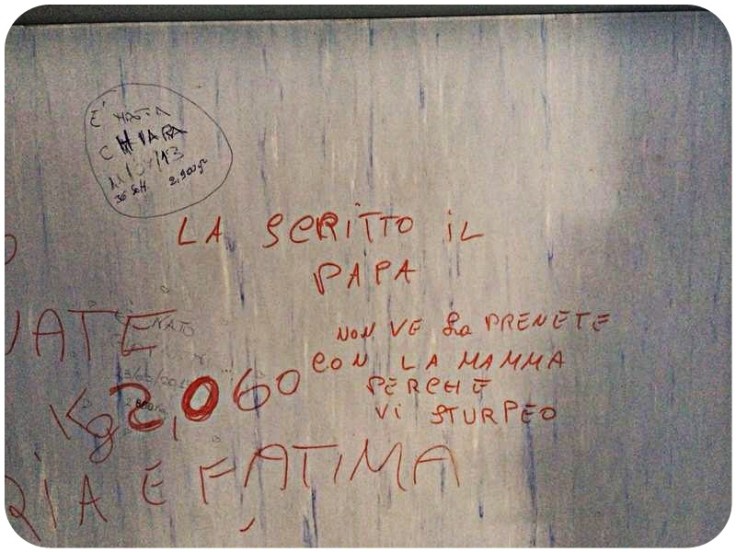 E' NATA
CHIARA
11/04/13
36 Sett 2,900 gr
LA SCRITTO iL
PAPA
NON VE La PRENETE
CON LA MAMMA
PERCHE
Vi STURPEO
NATO
NATE
Kg 2,060
RIA E FATIMA